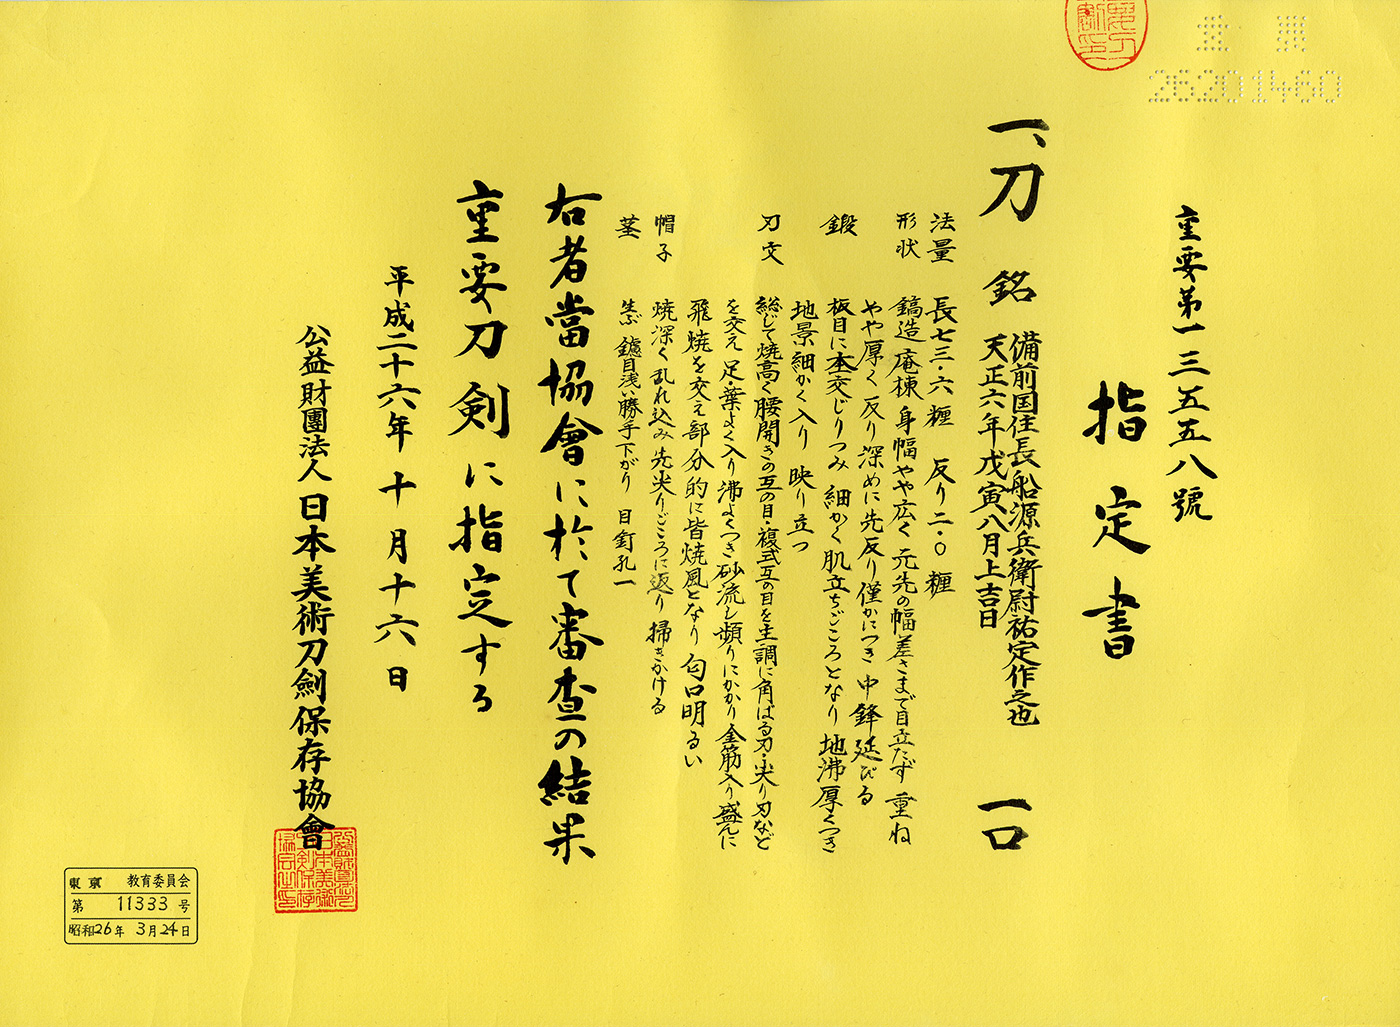 重要
26201460
重要第一三五五八號
指定書
一、刀 銘 備前国住長船源兵衛尉祐定作之也 一口
天正六年戊寅八月上吉日
法量 長七三・六糎 反り二・〇糎
形状 鎬造 庵棟 身幅やや広く 元先の幅差さまで目立たず 重ね
やや厚く 反り深めに先反り僅かにつき 中鋒延びる
鍛 板目に杢交じりつみ 細かく肌立ちごころとなり 地沸厚くつき
地景細かく入り 映り立つ
刃文 総じて焼高く 腰開きの互の目・複式互の目を主調に角ばる刃・尖り刃など
を交え 足・葉よく入り 沸よくつき 砂流し頻りにかかり 金筋入り 盛んに
飛焼を交え 部分的に皆焼風となり 匂口明るい
帽子 焼深く 乱れ込み 先尖りごころに返り 掃きかける
茎 生ぶ 鑢目浅い勝手下がり 目釘孔一
右者當協會に於て審査の結果
重要刀剣に指定する
平成二十六年十月十六日
公益財團法人日本美術刀劍保存協會
東京 教育委員会
第 11333 号
昭和26年 3月24日